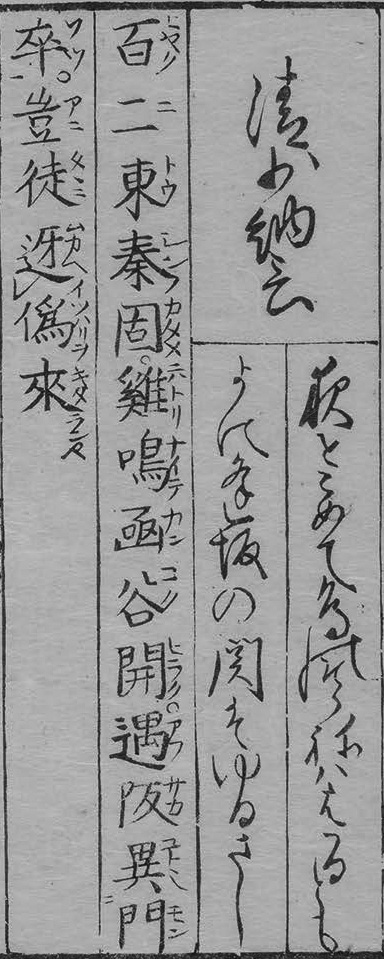 清少納言
夜をこめて鳥のそらねハはかるとも
よに逢坂の関はゆるさし
百二東秦固雞鳴函谷開遇阪異門
卒豈徒迓僞來